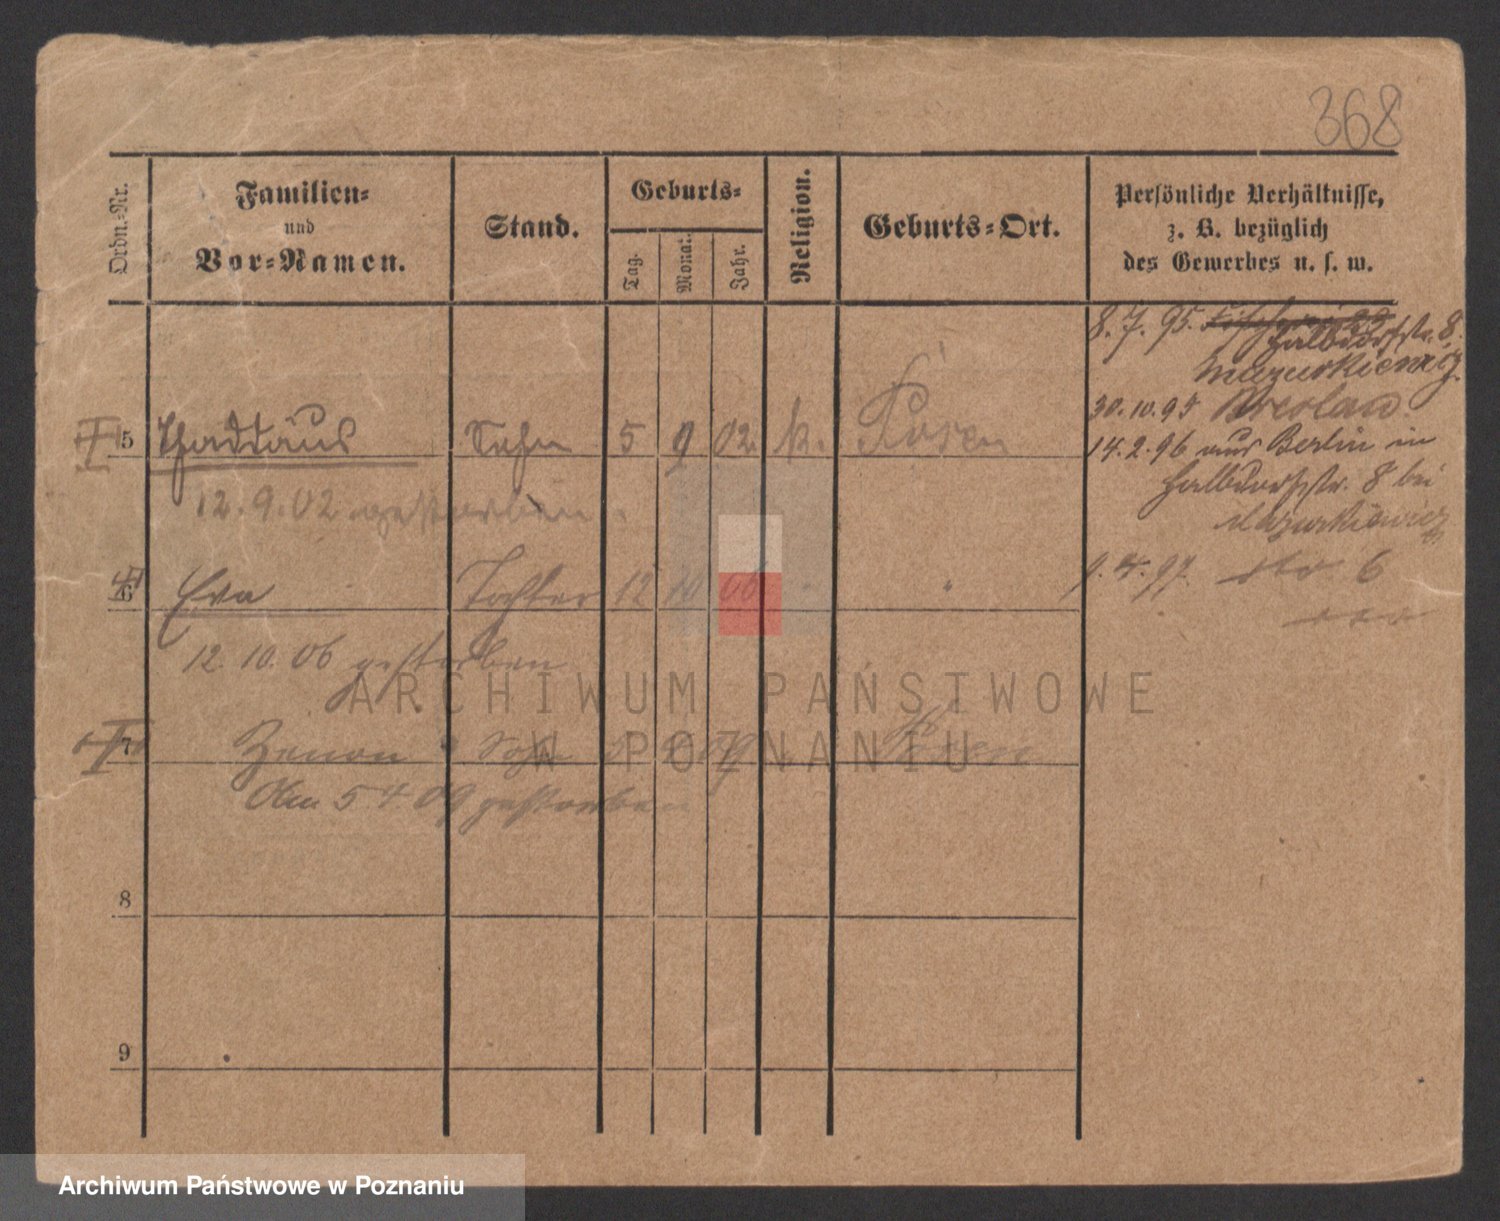 368
Ordn.-Nr.
Familien-
und
Vor-Namen.
Stand.
Geburts-
Tag.
Monat.
Jahr.
Religion.
Geburts-Ort.
Persönliche Verhältnisse,
z. B. bezüglich
des Gewerbes u. s. w.
8.7.95.
Halbdorfstr. 8.
Mazurkiewicz.
30.10.95 Breslau
5 Thaddäus Sohn 5 9 02. k. Posen
14.2.96 aus Berlin in
Halbdorfstr. 8 bei
12.9.02 gestorben.
Mazurkiewicz
6 Eva Tochter 12 10 06 " "
1.4.97. dto 6
12.10.06 gestorben
ARCHIWUM PAŃSTWOWE
W POZNANIU
7 Zenon Sohn 4 09 Posen
Am 5 4 09 gestorben
8
9
Archiwum Państwowe w Poznaniu